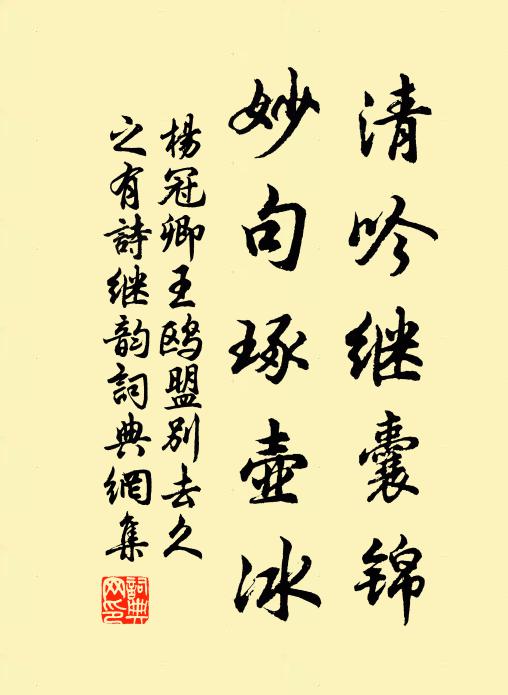 清吟继囊锦
妙句琢壶冰
楊冠卿王鸥盟别去久
之有詩继韵詞典網集
詞典网印